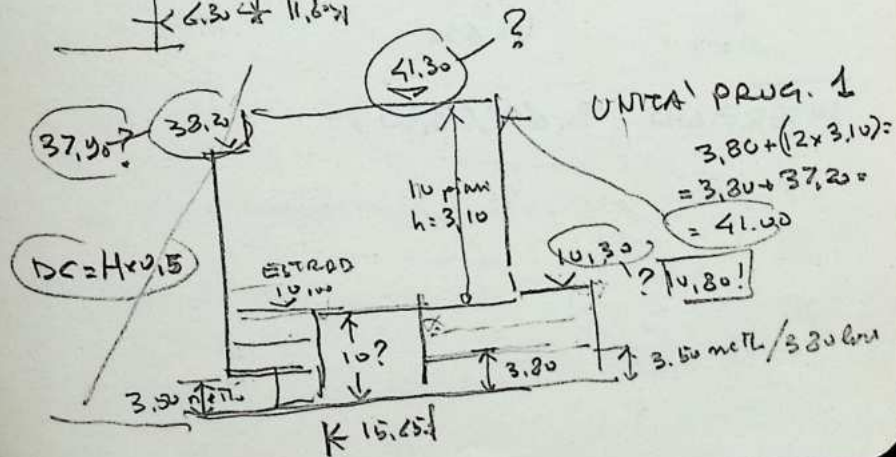 6.30
41.30 ?
37,90? 38,20
UNITA' PROG. 1
3,80+(12x3,10)=
= 3,80+37,20=
= 41.00
10 piani
h=3,10
DC=H×0,5
ESTRAD
10,00
10,30
? 10,80!
10?
3,80
3.50 netti/3.80 lordi
3,50 netti
15,65